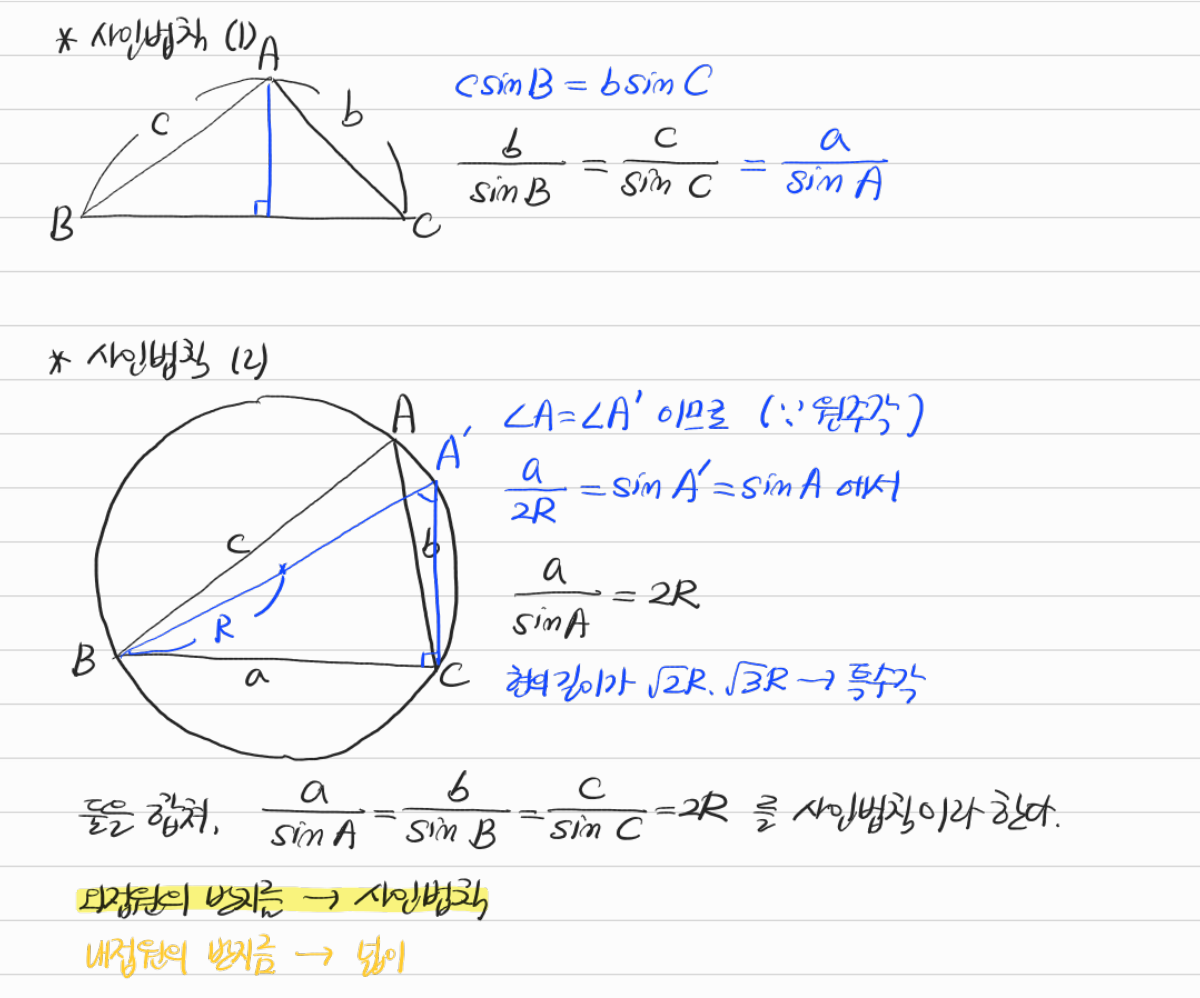 * 사인법칙 (1)
A
c
b
B
C
c sin B = b sin C
b/sin B = c/sin C = a/sin A
* 사인법칙 (2)
A
A'
c
b
R
B
a
C
∠A=∠A' 이므로 (∵ 원주각)
a/2R = sin A' = sin A 에서
a/sin A = 2R
현의 길이가 √2R, √3R → 특수각
둘을 합쳐, a/sin A = b/sin B = c/sin C = 2R 를 사인법칙이라 한다.
외접원의 반지름 → 사인법칙
내접원의 반지름 → 넓이